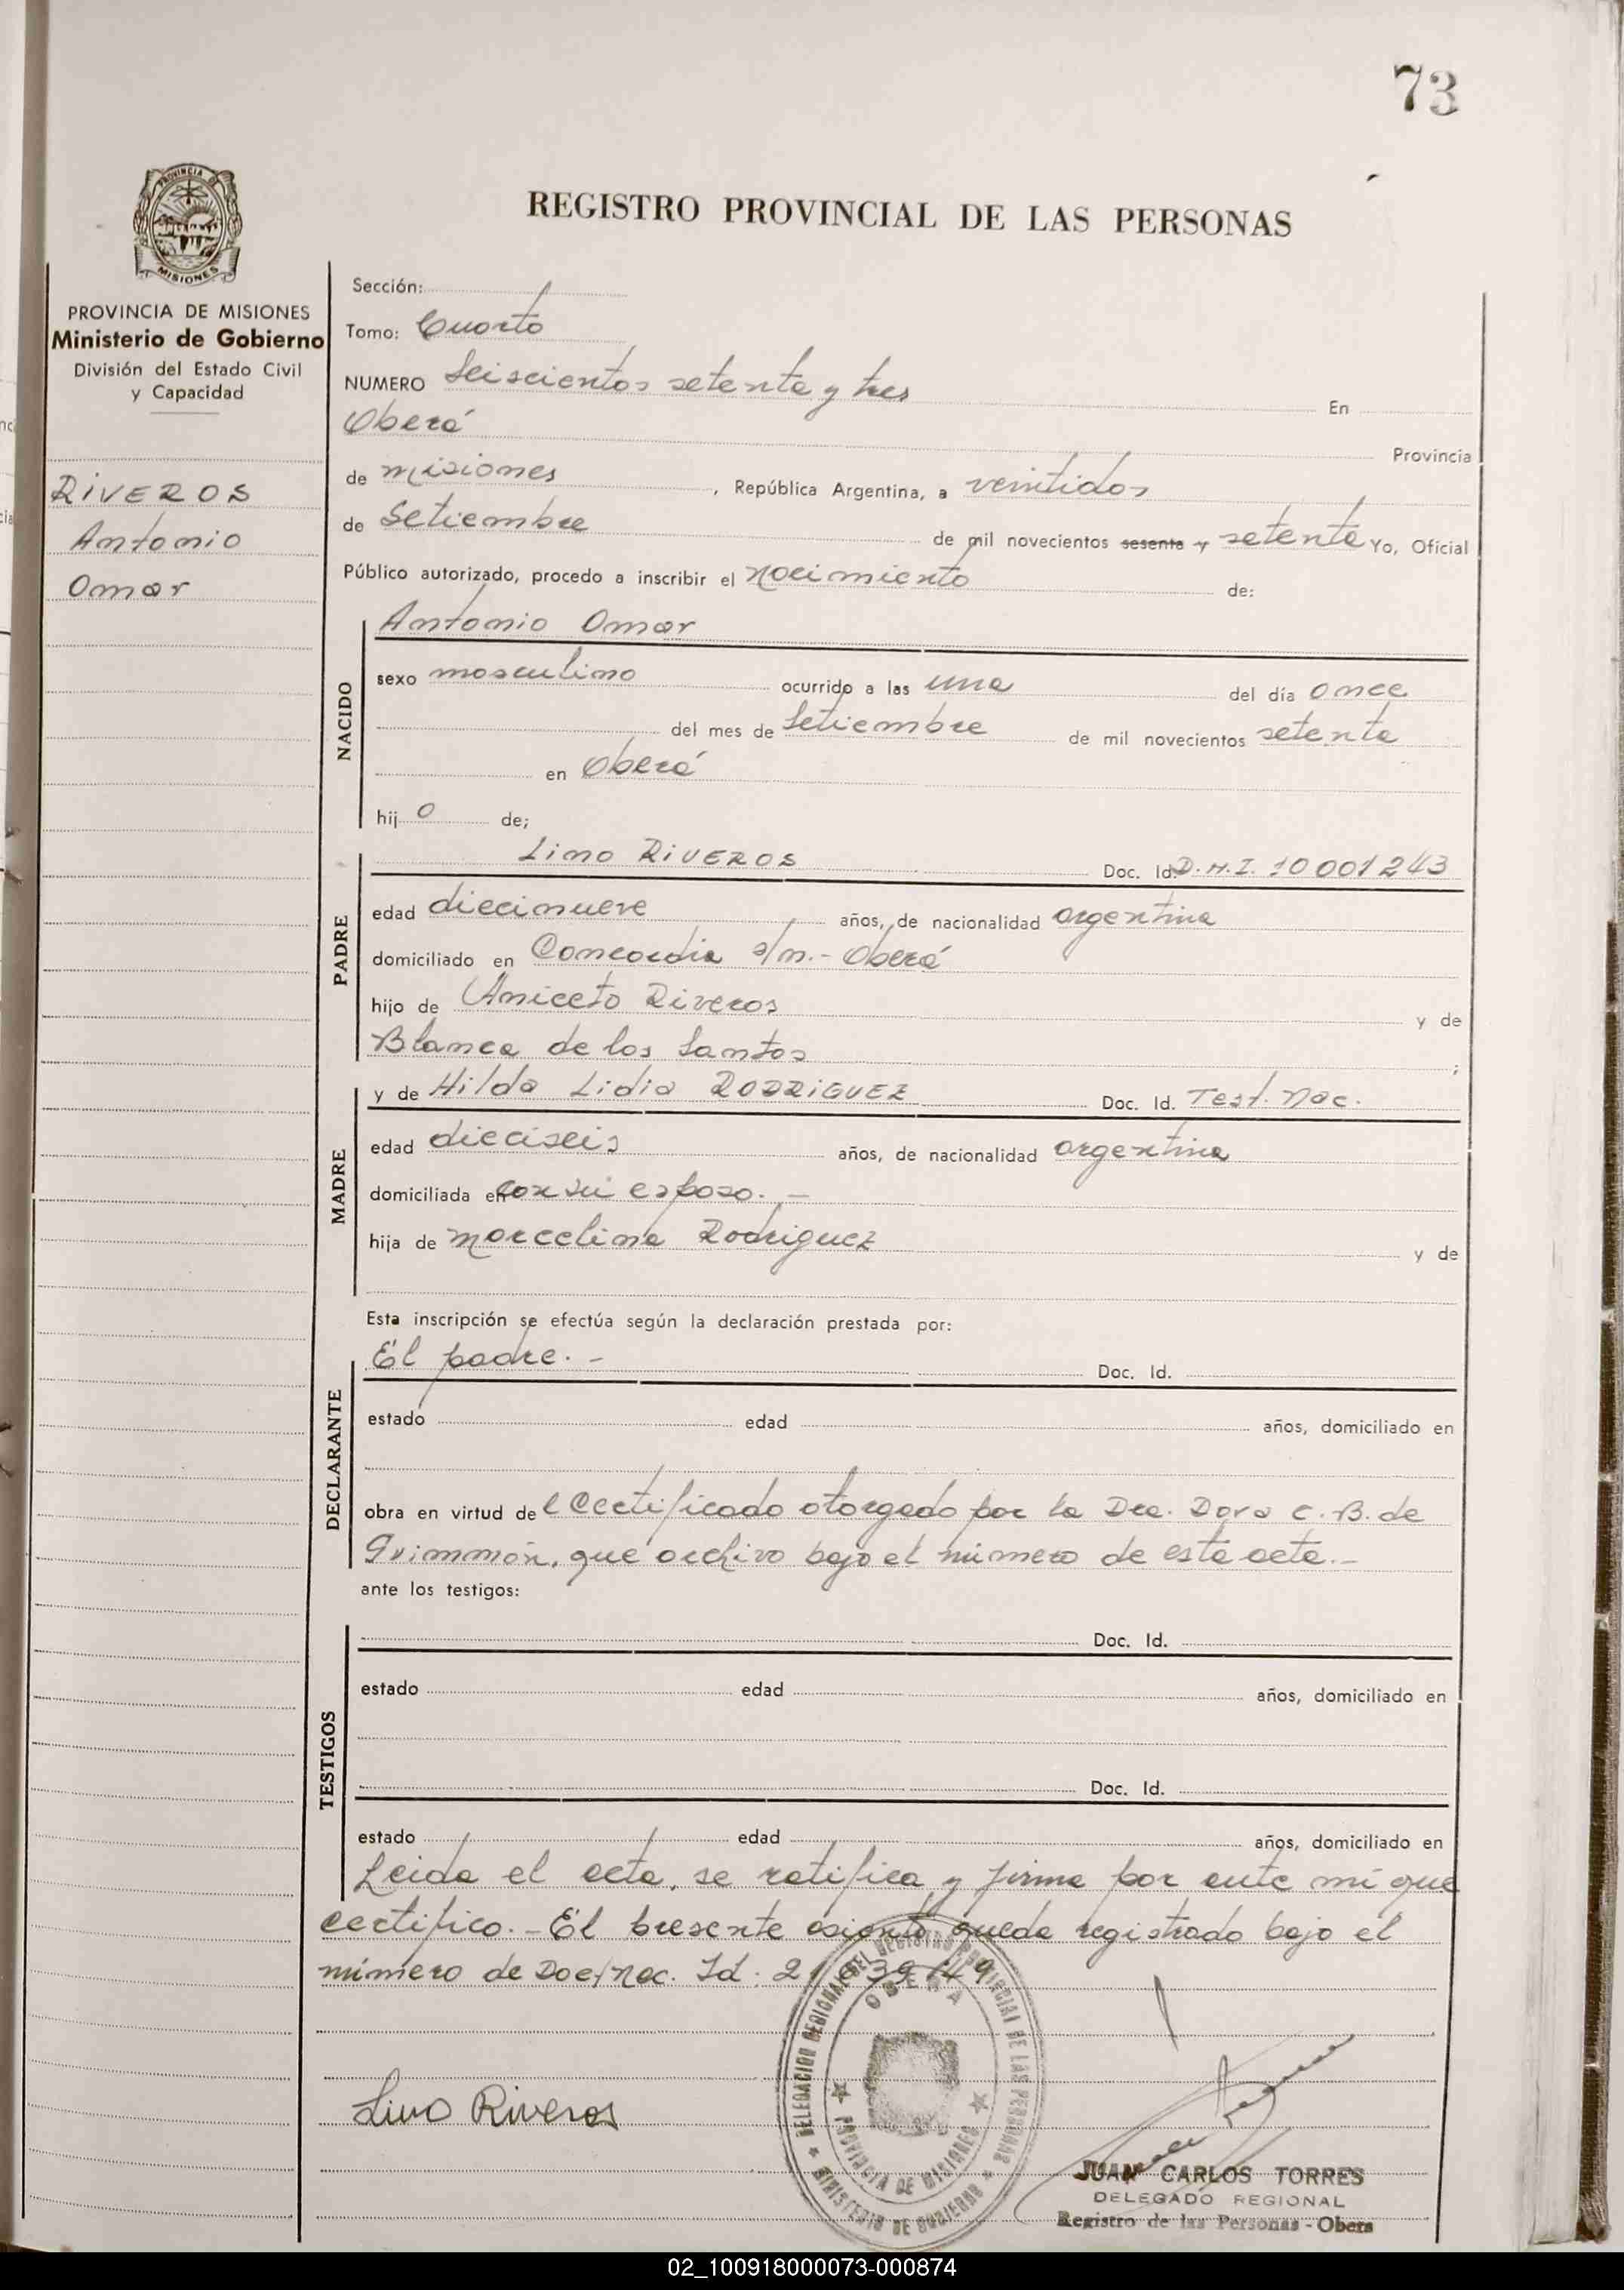 73
PROVINCIA DE
MISIONES
REGISTRO PROVINCIAL DE LAS PERSONAS
PROVINCIA DE MISIONES
Ministerio de Gobierno
División del Estado Civil
y Capacidad
RIVEROS
Antonio
Omar
Sección:
Tomo: Cuarto
NUMERO Seiscientos setenta y tres En
Oberá Provincia
de misiones, República Argentina, a veintidos
de Setiembre de mil novecientos sesenta y setenta Yo, Oficial
Público autorizado, procedo a inscribir el nacimiento de:
NACIDO
Antonio Omar
sexo masculino ocurrido a las una del día once
del mes de Setiembre de mil novecientos setenta
en Oberá
hijo de;
PADRE
Lino RIVEROS Doc. Id. D.N.I. 10 001 243
edad diecinueve años, de nacionalidad argentina
domiciliado en Concordia s/n.- Oberá
hijo de Aniceto Riveros y de
Blanca de los Santos ;
MADRE
y de Hilda Lidia RODRIGUEZ Doc. Id. Test. Nac.
edad dieciseis años, de nacionalidad argentina
domiciliada en con su esposo. -
hija de Marcelina Rodriguez y de
Esta inscripción se efectúa según la declaración prestada por:
DECLARANTE
El padre. - Doc. Id.
estado edad años, domiciliado en
obra en virtud del Certificado otorgado por la Dra. Dora C. B. de
Grimmón, que archivo bajo el número de esta acta.-
ante los testigos:
TESTIGOS
Doc. Id.
estado edad años, domiciliado en
Doc. Id.
estado edad años, domiciliado en
Leida el acta, se ratifica y firma por ante mi que
certifico.- El presente asiento queda registrado bajo el
número de Doc. Nac. Id.
DELEGACION REGIONAL DEL REGISTRO PROVINCIAL DE LAS PERSONAS
OBERA
PROVINCIA DE MISIONES
MINISTERIO DE GOBIERNO
Lino Riveros
JUAN CARLOS TORRES
DELEGADO REGIONAL
Registro de las Personas - Obera
02_100918000073-000874